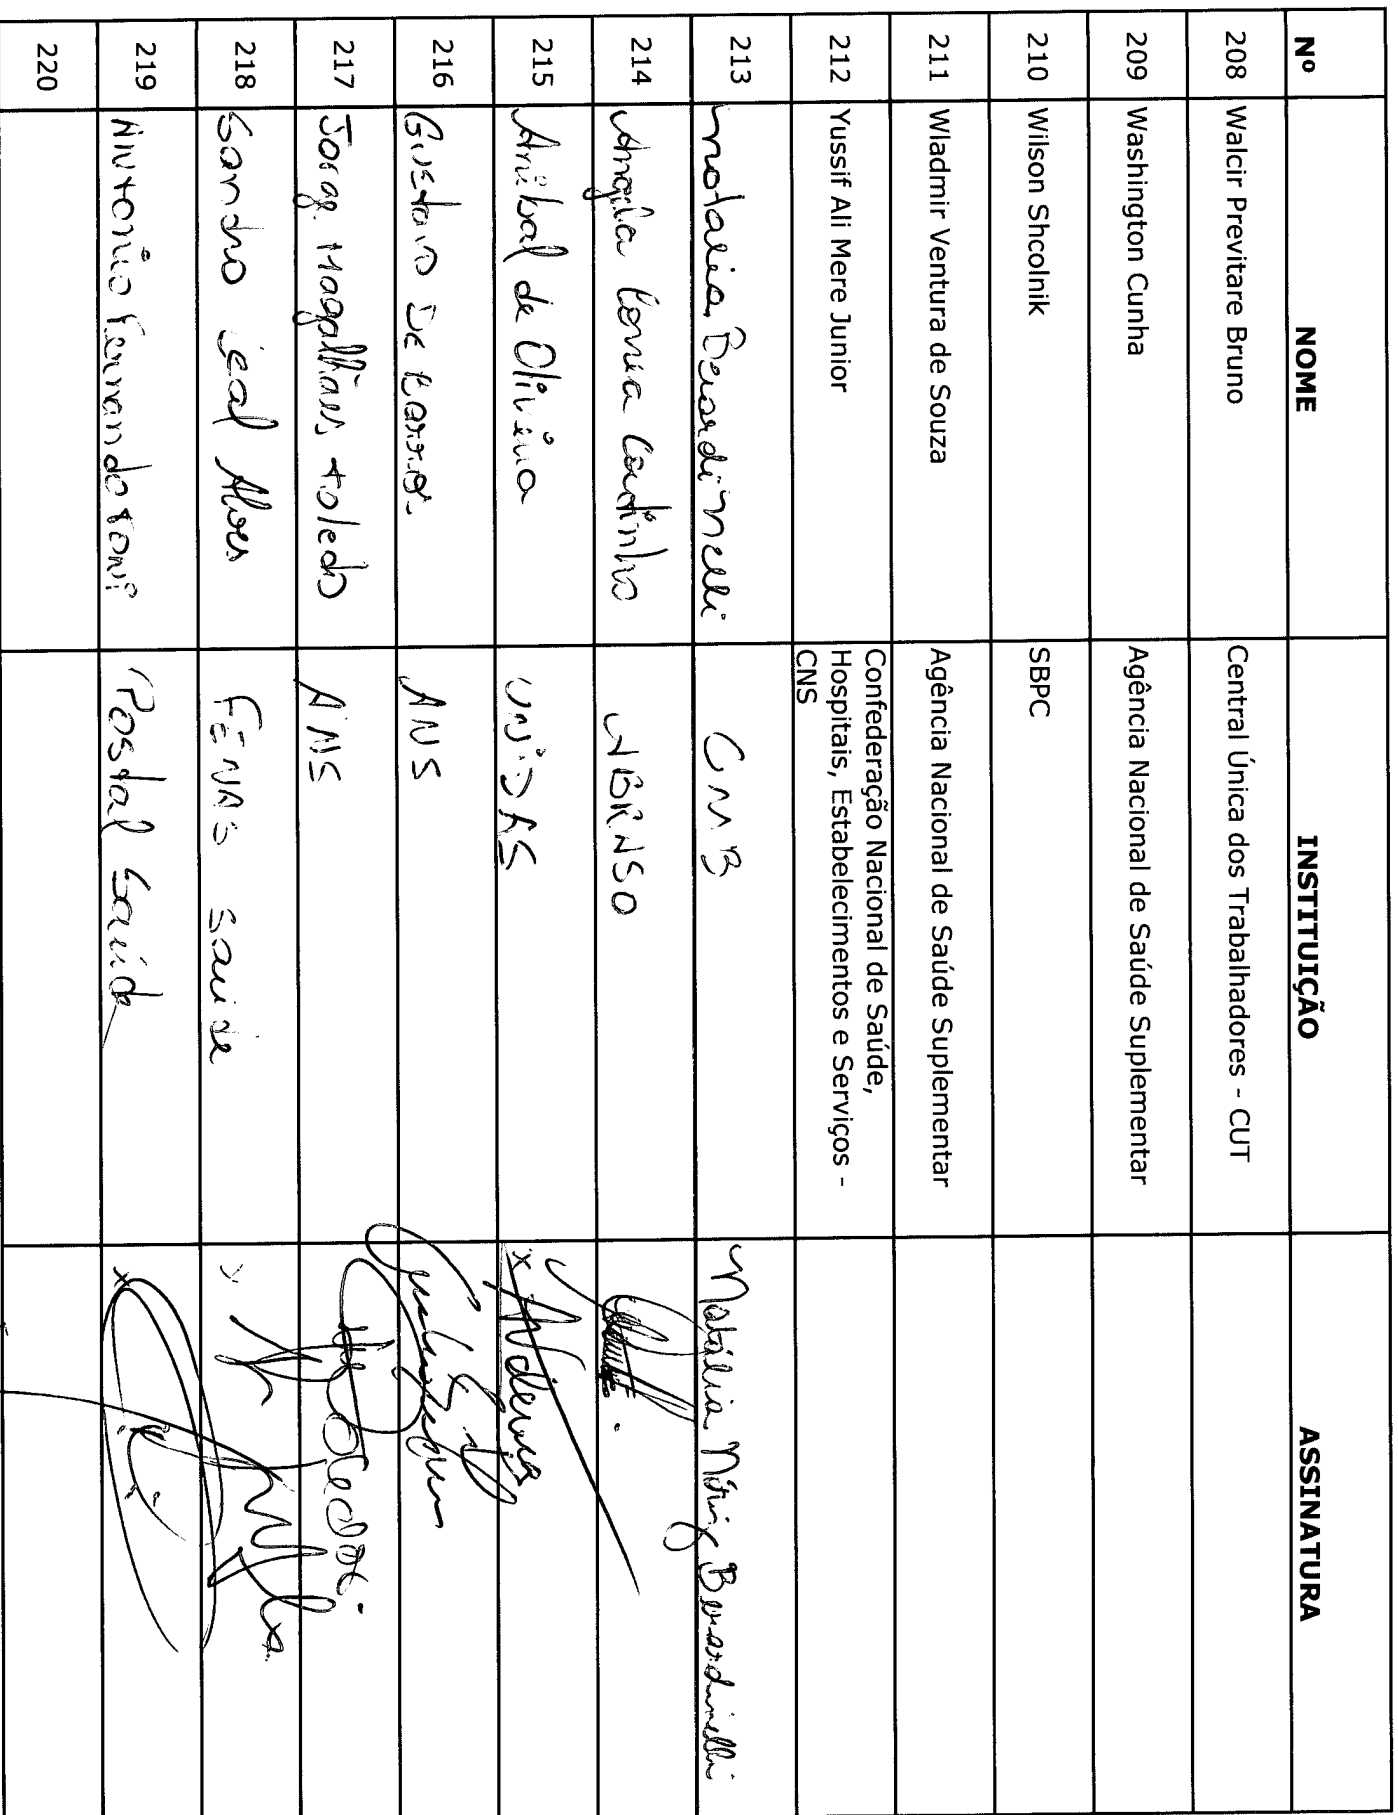 Nº NOME INSTITUIÇÃO ASSINATURA
208 Walcir Previtare Bruno Central Única dos Trabalhadores - CUT
209 Washington Cunha Agência Nacional de Saúde Suplementar
210 Wilson Shcolnik SBPC
211 Wladmir Ventura de Souza Agência Nacional de Saúde Suplementar
212 Yussif Ali Mere Junior Confederação Nacional de Saúde,
Hospitais, Estabelecimentos e Serviços -
CNS
213 Natalia Berardinelli CMB Natália Berardinelli
214 Angela Coutinho
215 Anibal de Oliveira UNIDAS
216 Gustavo De Barros ANS
217 Jorge Magalhães toledo ANS
218 Sandro Leal Alves FENASSaúde
219 Antonio Fernando Postal Saúde
220